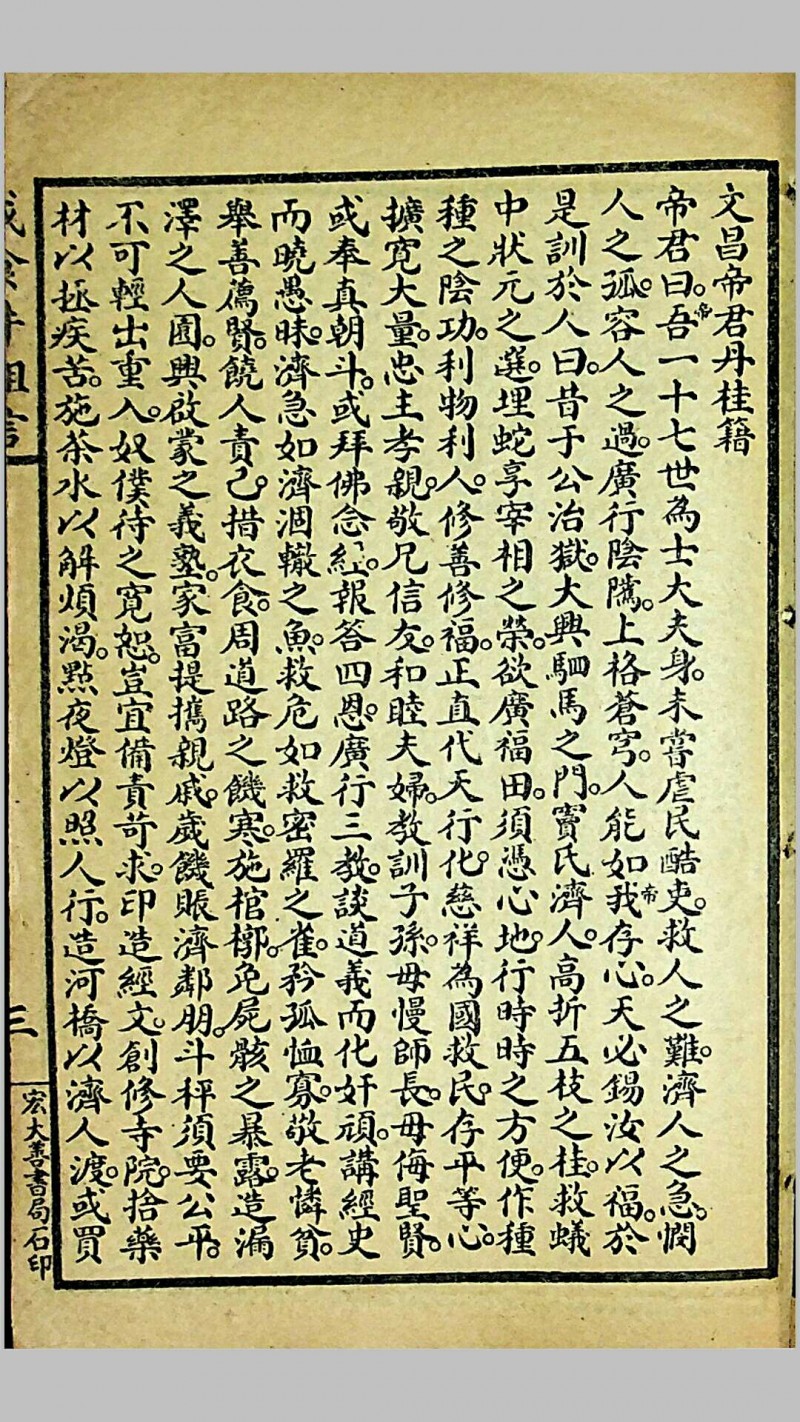 文昌帝君丹桂籍
帝君曰。吾帝一十七世為士大夫身。未嘗虐民酷吏。救人之難。濟人之急。憫
人之孤。容人之過。廣行陰隲。上格蒼穹。人能如我帝存心。天必錫汝以福。於
是訓於人曰。昔于公治獄。大興駟馬之門。竇氏濟人。高折五枝之桂。救蟻
中狀元之選。埋蛇享宰相之榮。欲廣福田。須憑心地。行時時之方便。作種
種之陰功。利物利人。修善修福。正直代天行化。慈祥為國救民。存平等心。
擴寬大量。忠主孝親。敬兄信友。和睦夫婦。教訓子孫。毋慢師長。毋侮聖賢。
或奉真朝斗。或拜佛念經。報答四恩。廣行三教。談道義而化奸頑。講經史
而曉愚昧。濟急如濟涸轍之魚。救危如救密羅之雀。矜孤恤寡。敬老憐貧。
舉善薦賢。饒人責己。措衣食。周道路之饑寒。施棺槨。免屍骸之暴露。造漏
澤之人園。興啟蒙之義塾。家富提攜親戚。歲饑賑濟鄰朋。斗秤須要公平。
不可輕出重入。奴僕待之寬恕。豈宜備責苛求。印造經文。創修寺院。捨藥
材以拯疾苦。施茶水以解煩渴。點夜燈以照人行。造河橋以濟人渡。或買
三
宏大善書局石印